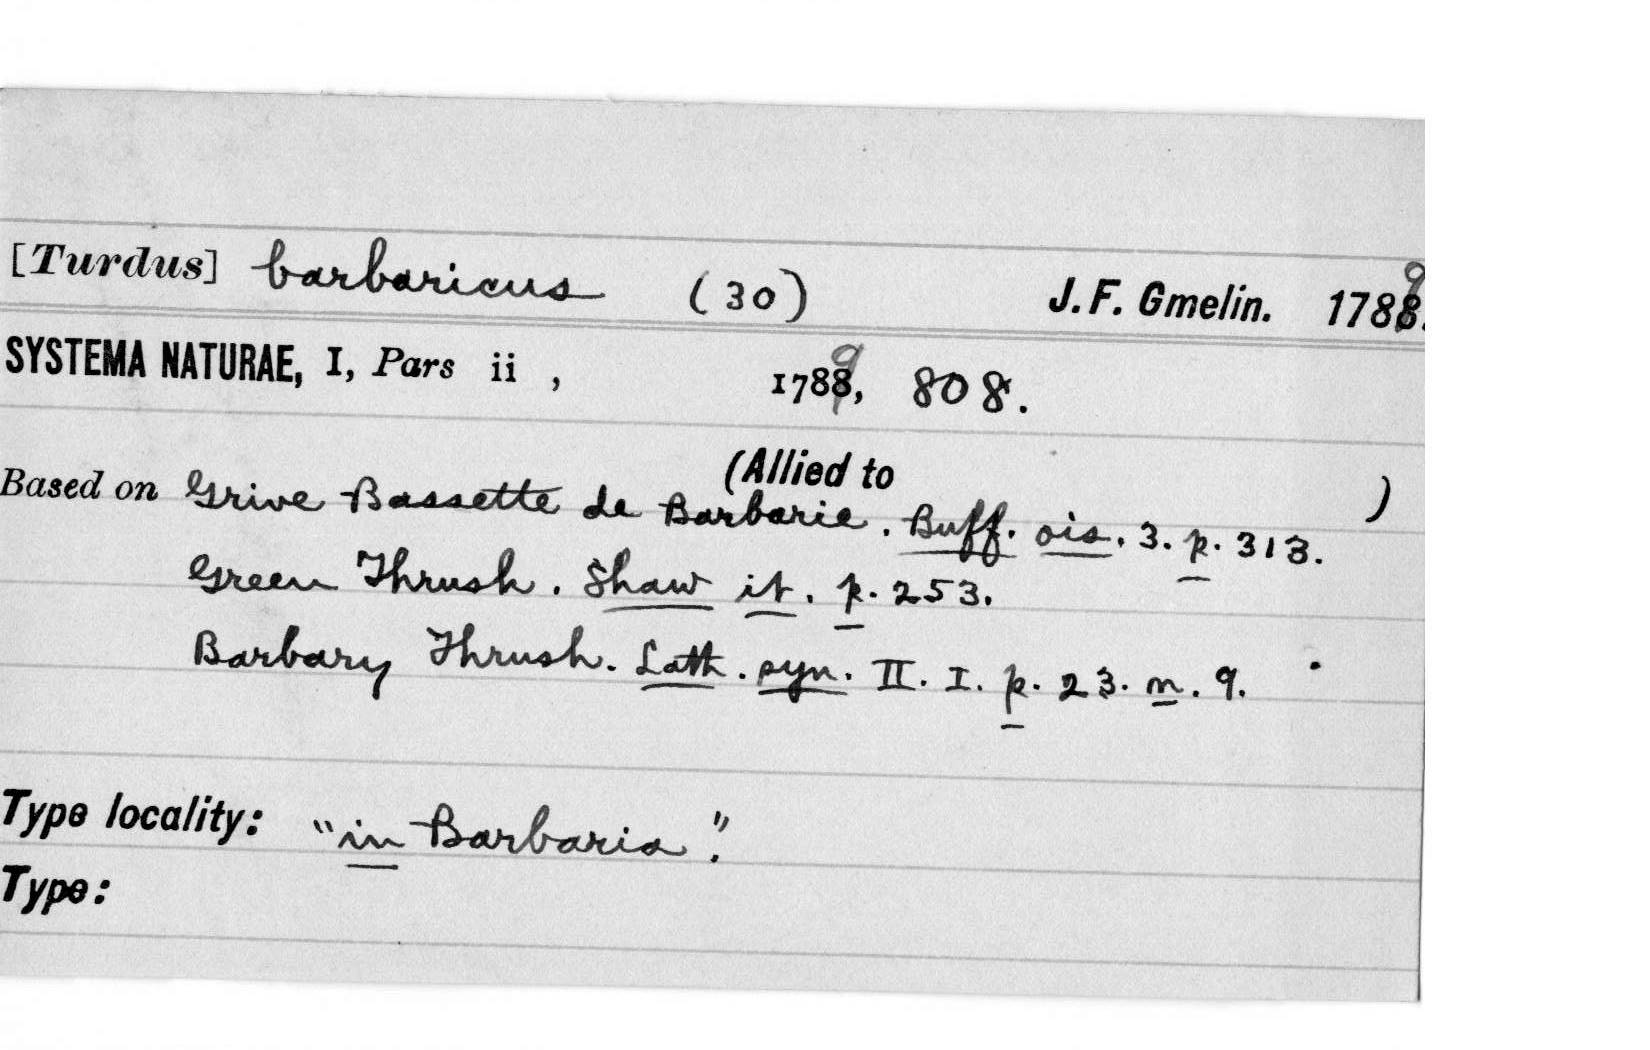 [Turdus] barbaricus (30) J. F. Gmelin. 1789.
SYSTEMA NATURAE, I, Pars ii , 1789, 808.
(Allied to )
Based on Grive Bassette de Barbarie. Buff. ois. 3. p. 313.
Green Thrush. Shaw it. p. 253.
Barbary Thrush. Lath. syn. II. I. p. 23. n. 9.
Type locality: "in Barbaria".
Type: